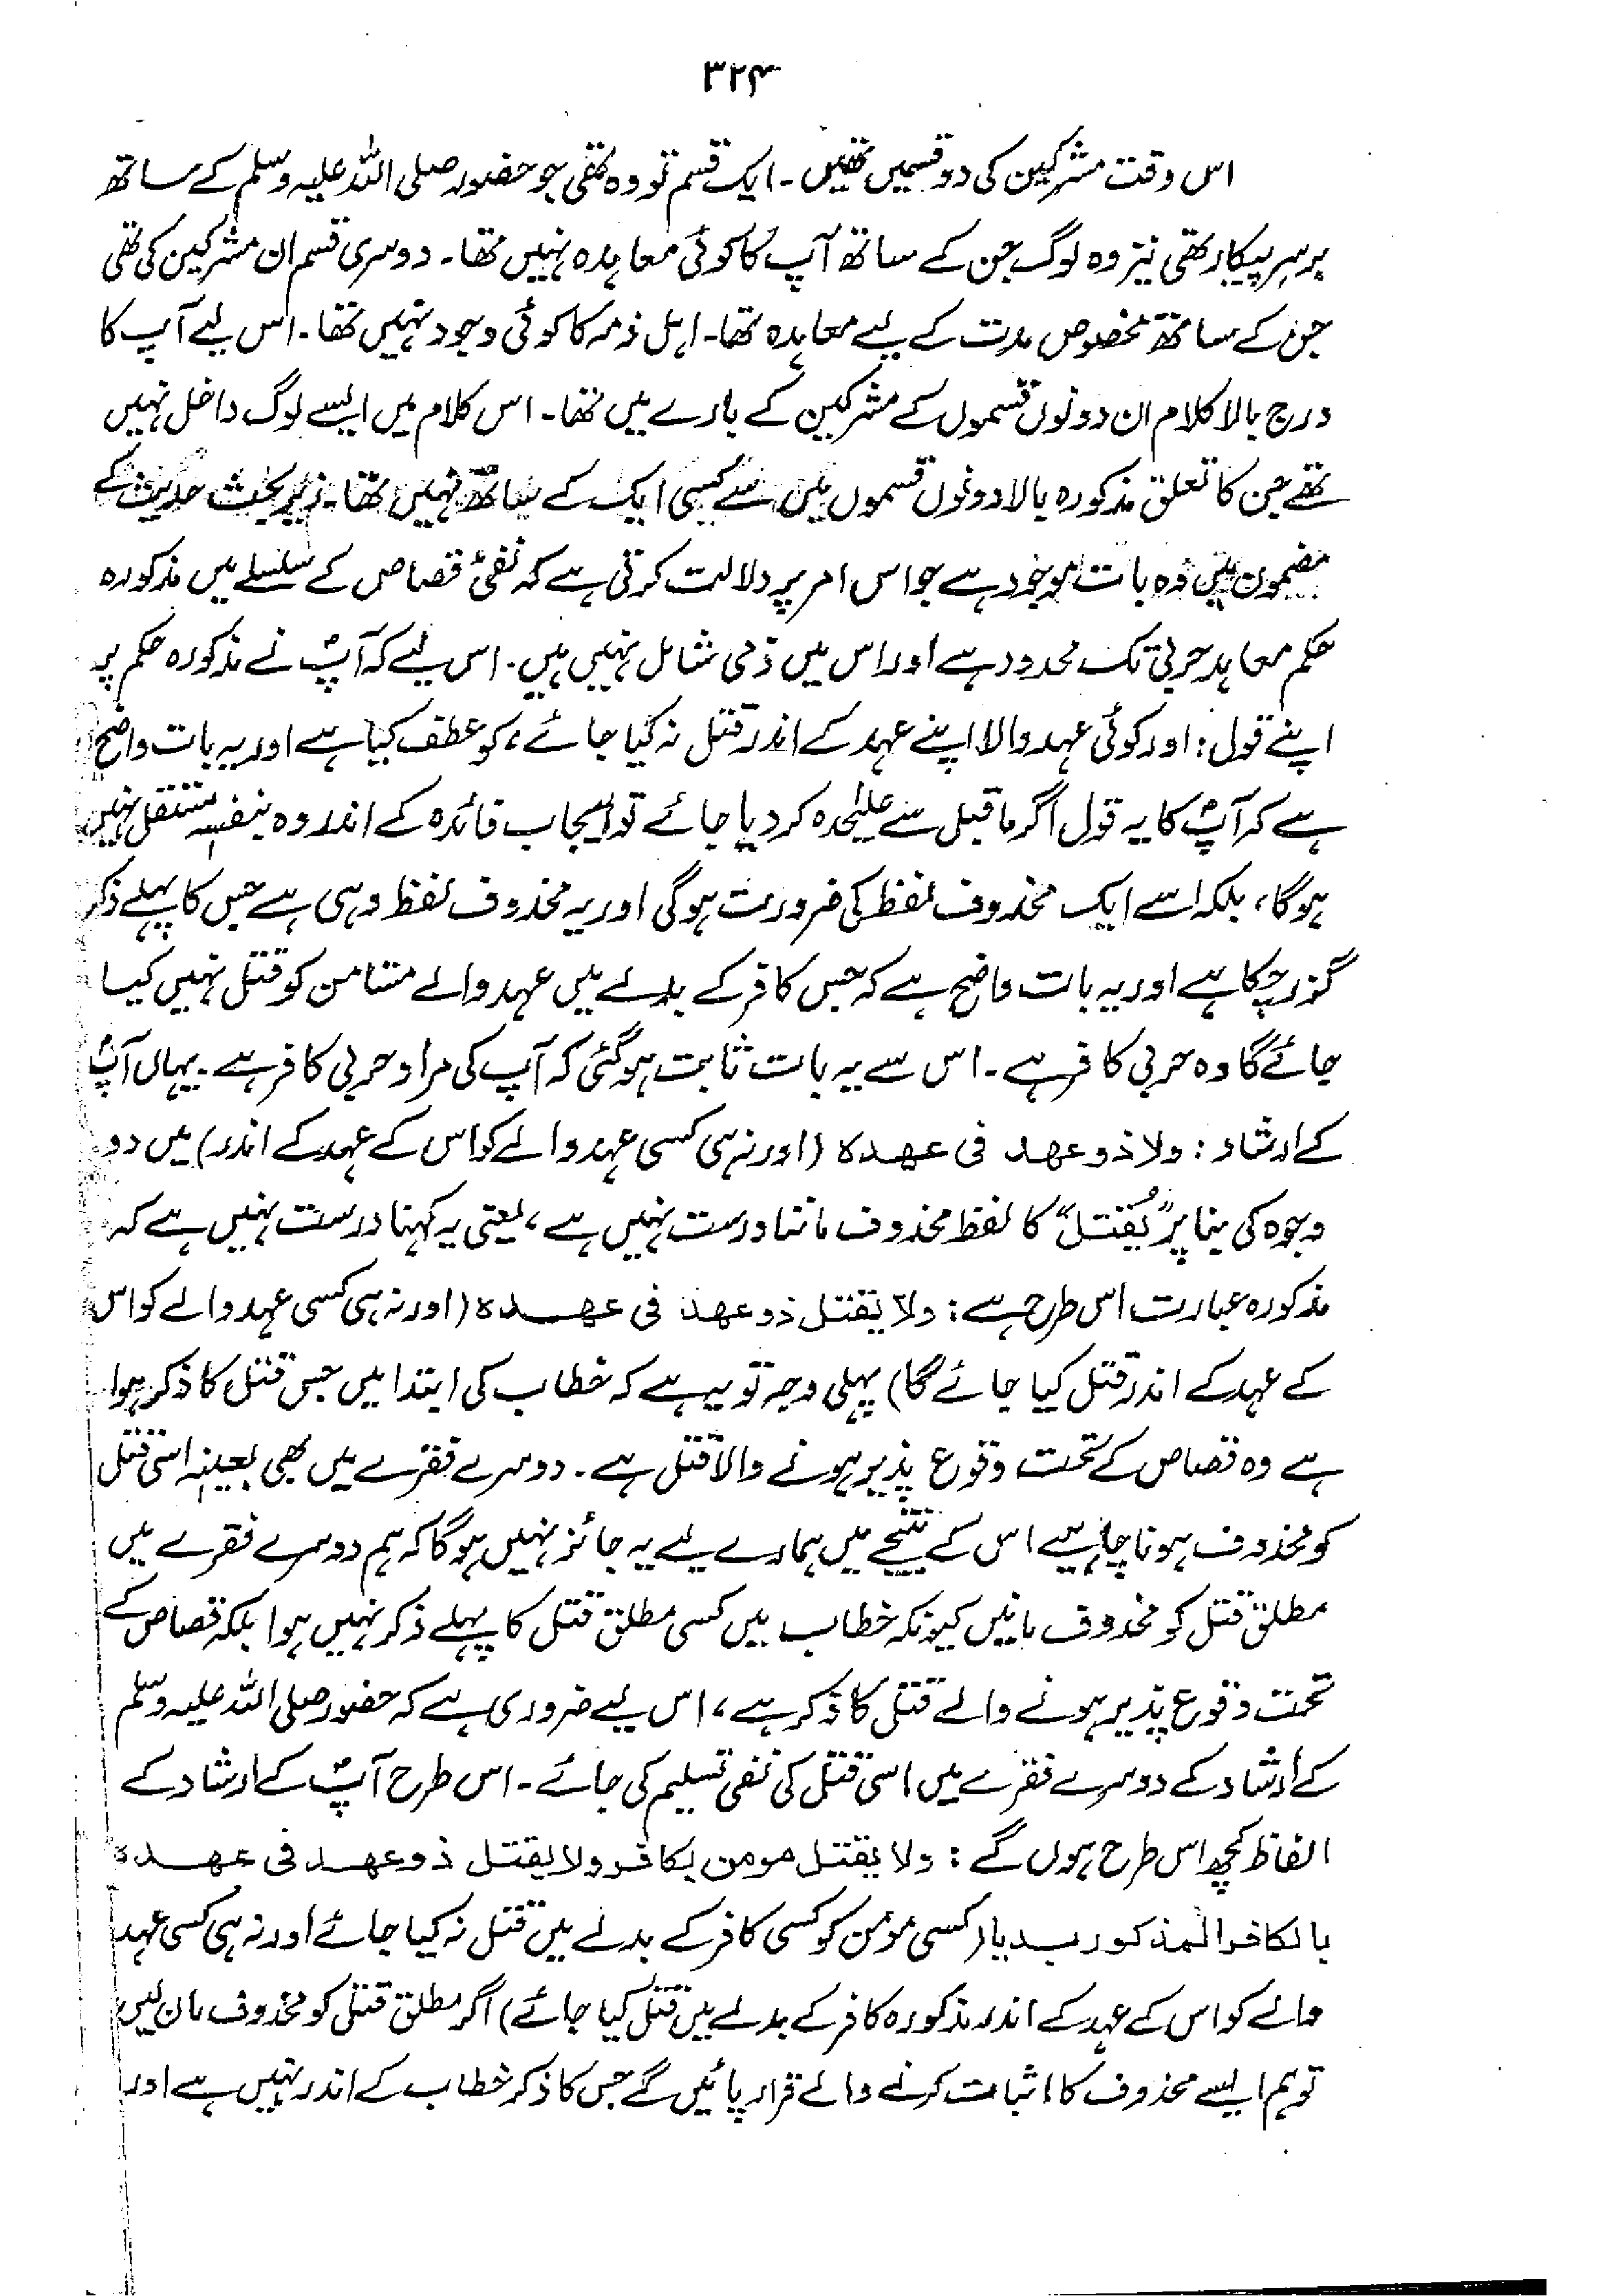 ۳۲۴
اس وقت مشرکین کی دو قسمیں تھیں۔ ایک قسم تو وہ تھی جو حضور صلی اللہ علیہ وسلم کے ساتھ
برسرِ پیکار تھی نیز وہ لوگ جن کے ساتھ آپؐ کا کوئی معاہدہ نہیں تھا۔ دوسری قسم ان مشرکین کی تھی
جن کے ساتھ مخصوص مدت کے لیے معاہدہ تھا۔ اہل ذمہ کا کوئی وجود نہیں تھا۔ اس لیے آپ کا
درج بالا کلام ان دونوں قسموں کے مشرکین کے بارے میں تھا۔ اس کلام میں ایسے لوگ داخل نہیں
تھے جن کا تعلق مذکورہ بالا دونوں قسموں میں سے کسی ایک کے ساتھ نہیں تھا۔ زیر بحث حدیث کے
مضمون میں وہ بات موجود ہے جو اس امر پر دلالت کرتی ہے کہ نفیٔ قصاص کے سلسلے میں مذکورہ
حکم معاہد حربی تک محدود ہے اور اس میں ذمی شامل نہیں ہیں۔ اس لیے کہ آپؐ نے مذکورہ حکم پر
اپنے قول: اور کوئی عہد والا اپنے عہد کے اندر قتل نہ کیا جائے، کو عطف کیا ہے اور یہ بات واضح
ہے کہ آپؐ کا یہ قول اگر ماقبل سے علیحدہ کر دیا جائے تو ایجاب فائدہ کے اندر وہ بنفسہٖ مستقل نہیں
ہوگا، بلکہ اسے ایک محذوف لفظ کی ضرورت ہوگی اور یہ محذوف لفظ وہی ہے جس کا پہلے ذکر
گزر چکا ہے اور یہ بات واضح ہے کہ جس کافر کے بدلے میں عہد والے مستامن کو قتل نہیں کیا
جائے گا وہ حربی کافر ہے۔ اس سے یہ بات ثابت ہو گئی کہ آپ کی مراد حربی کافر ہے۔ یہاں آپؐ
کے ارشاد: ولا ذو عھد فی عھدہ (اور نہ ہی کسی عہد والے کو اس کے عہد کے اندر) میں دو
وجوہ کی بنا پر "یُقتل" کا لفظ محذوف ماننا درست نہیں ہے، یعنی یہ کہنا درست نہیں ہے کہ
مذکورہ عبارت اس طرح ہے: ولا یقتل ذو عھد فی عھدہ (اور نہ ہی کسی عہد والے کو اس
کے عہد کے اندر قتل کیا جائے گا) پہلی وجہ تو یہ ہے کہ خطاب کی ابتدا میں جس قتل کا ذکر ہوا
ہے وہ قصاص کے تحت وقوع پذیر ہونے والا قتل ہے۔ دوسرے فقرے میں بھی بعینہٖ اسی قتل
کو محذوف ہونا چاہیے اس کے نتیجے میں ہمارے لیے یہ جائز نہیں ہوگا کہ ہم دوسرے فقرے میں
مطلق قتل کو محذوف مانیں کیونکہ خطاب میں کسی مطلق قتل کا پہلے ذکر نہیں ہوا بلکہ قصاص کے
تحت وقوع پذیر ہونے والے قتل کا ذکر ہے، اس لیے ضروری ہے کہ حضور صلی اللہ علیہ وسلم
کے ارشاد کے دوسرے فقرے میں اسی قتل کی نفی تسلیم کی جائے۔ اس طرح آپؐ کے ارشاد کے
الفاظ کچھ اس طرح ہوں گے: ولا یقتل مومن بکافر ولا یقتل ذو عھد فی عھدہ
بالکافر المذکور بدیا (کسی مومن کو کسی کافر کے بدلے میں قتل نہ کیا جائے اور نہ ہی کسی عہد
والے کو اس کے عہد کے اندر مذکورہ کافر کے بدلے میں قتل کیا جائے) اگر مطلق قتل کو محذوف مان لیں
تو ہم ایسے محذوف کا اثبات کرنے والے قرار پائیں گے جس کا ذکر خطاب کے اندر نہیں ہے اور